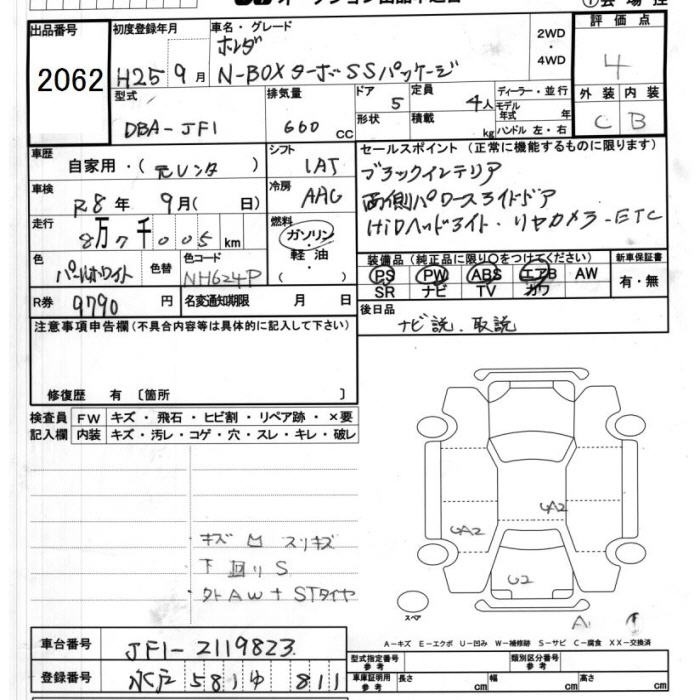 出品番号
2062
初度登録年月
H25年 9月
車名・グレード
ホンダ
N-BOXターボSSパッケージ
2WD
・
4WD
評価点
4
外装 内装
C B
型式
DBA-JF1
排気量
660 cc
ドア 5
形状
定員 4人
積載 kg
ディーラー・並行
モデル年式 年
ハンドル 左・右
車歴
自家用・(元レンタ)
シフト
IAT
セールスポイント(正常に機能するものに限ります)
ブラックインテリア
両側パワースライドドア
HiDヘッドライト・リヤカメラ・ETC
車検
R8年 9月( 日)
冷房
AAC
走行
8万7千005km
燃料
ガソリン
・
軽油
・
( )
色
パールホワイト
色替
色コード
NH624P
装備品(純正品に限り○をつけてください)
新車保証書
PS PW ABS エアB AW
SR ナビ TV カワ
有・無
R券 9790 円
名変通知期限 月 日
後日品
ナビ説.取説
注意事項申告欄(不具合内容等は具体的に記入して下さい)
修復歴 有 〔箇所 〕
検査員記入欄
FW キズ・飛石・ヒビ割・リペア跡・×要
内装 キズ・汚レ・コゲ・穴・スレ・キレ・破レ
キズ 凹 スリキズ
下回りS
外AW+STタイヤ
UA2
UA2
U2
スペア
A1
A-キズ E-エクボ U-凹み W-補修跡 S-サビ C-腐食 XX-交換済
車台番号
JF1-2119823
登録番号
水戸 581 ゆ 811
型式指定番号
参考
類別区分番号
参考
車庫証明用
参考
長さ cm
幅 cm
高さ cm